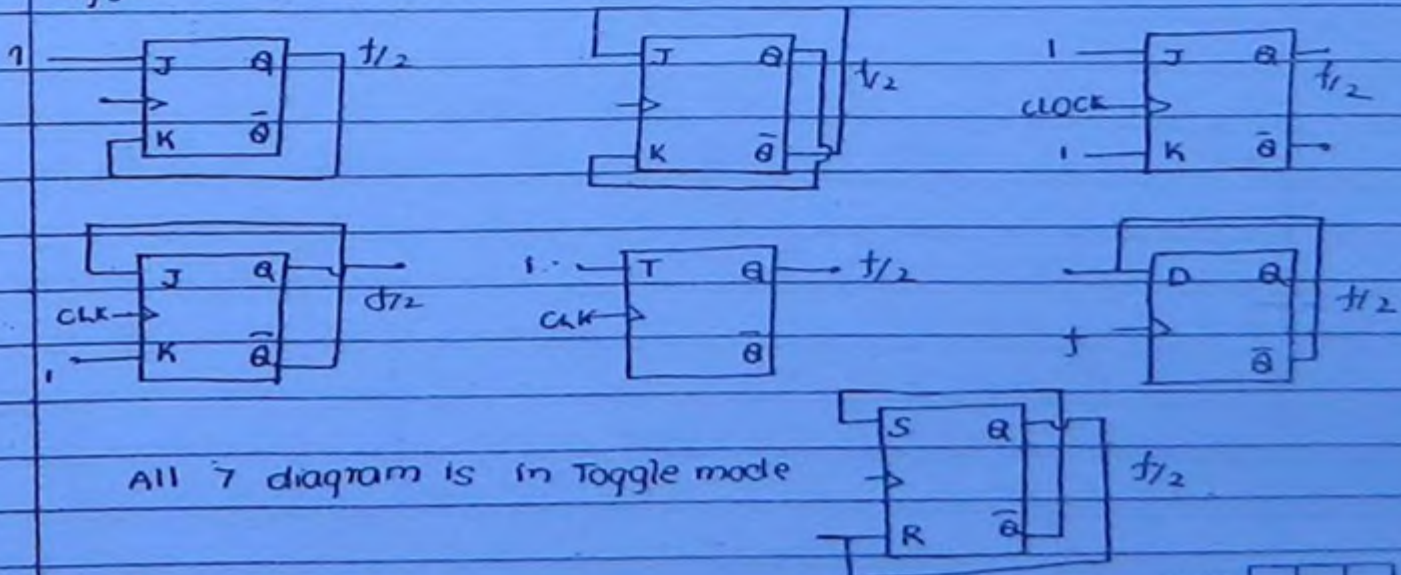 1 J Q f/2
K Q̅
J Q f/2
K Q̅
1 J Q f/2
CLOCK
1 K Q̅
J Q
CLK f/2
1 K Q̅
1 T Q f/2
CLK
Q̅
D Q f/2
f
Q̅
S Q
All 7 diagram is in Toggle mode f/2
R Q̅